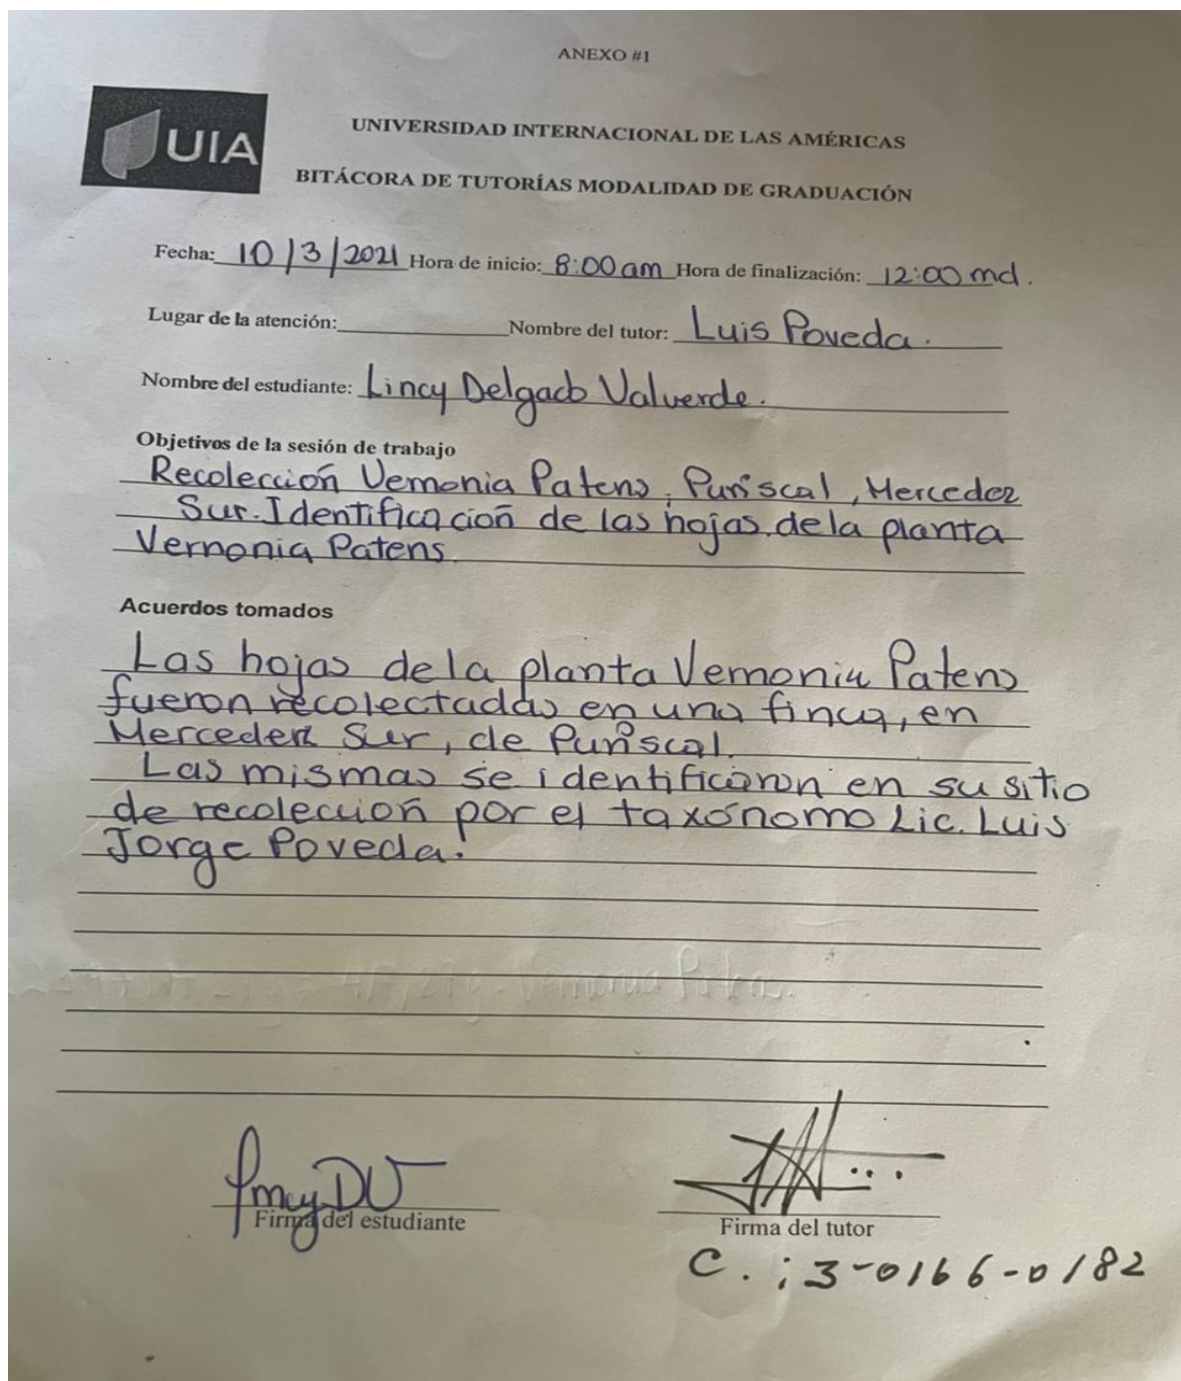 ANEXO #1
UIA
UNIVERSIDAD INTERNACIONAL DE LAS AMÉRICAS
BITÁCORA DE TUTORÍAS MODALIDAD DE GRADUACIÓN
Fecha: 10/3/2021 Hora de inicio: 8:00 am Hora de finalización: 12:00 md.
Lugar de la atención: Nombre del tutor: Luis Poveda.
Nombre del estudiante: Lincy Delgado Valverde.
Objetivos de la sesión de trabajo
Recolección Vernonia Patens, Puriscal, Mercedez
Sur. Identificación de las hojas de la planta
Vernonia Patens
Acuerdos tomados
Las hojas de la planta Vernonia Patens
fueron recolectadas en una finca, en
Mercedez Sur, de Puriscal.
Las mismas se identificaron en su sitio
de recolección por el taxónomo Lic. Luis
Jorge Poveda.
Firma del estudiante
Firma del tutor
C.: 3-0166-0182